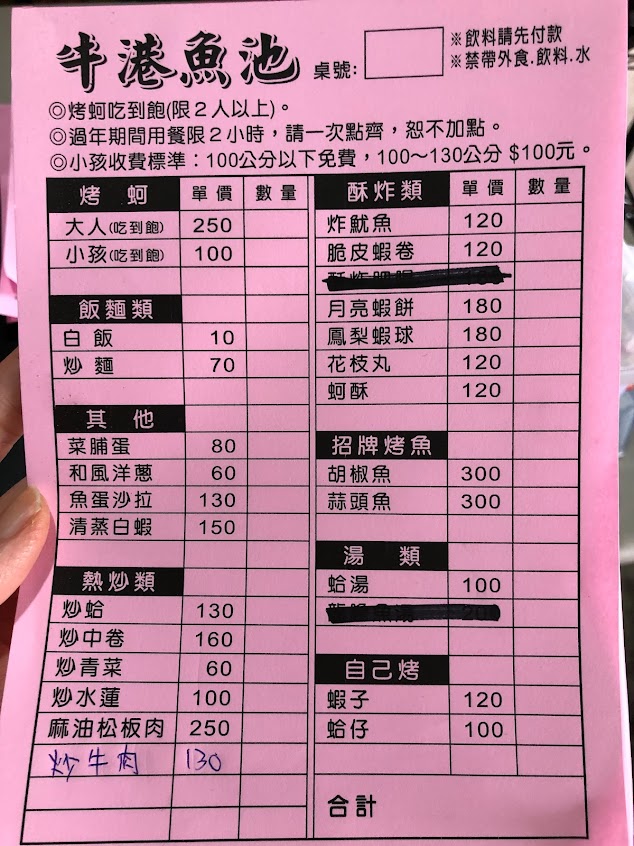 牛港魚池
桌號:
※飲料請先付款
※禁帶外食.飲料.水
◎烤蚵吃到飽(限２人以上)。
◎過年期間用餐限２小時，請一次點齊，恕不加點。
◎小孩收費標準：100公分以下免費，100～130公分 $100元。
烤 蚵 單價 數量
大人(吃到飽) 250
小孩(吃到飽) 100
飯麵類
白飯 10
炒麵 70
其 他
菜脯蛋 80
和風洋蔥 60
魚蛋沙拉 130
清蒸白蝦 150
熱炒類
炒蛤 130
炒中卷 160
炒青菜 60
炒水蓮 100
麻油松板肉 250
炒牛肉 130
酥炸類 單價 數量
炸魷魚 120
脆皮蝦卷 120
月亮蝦餅 180
鳳梨蝦球 180
花枝丸 120
蚵酥 120
招牌烤魚
胡椒魚 300
蒜頭魚 300
湯 類
蛤湯 100
自己烤
蝦子 120
蛤仔 100
合計